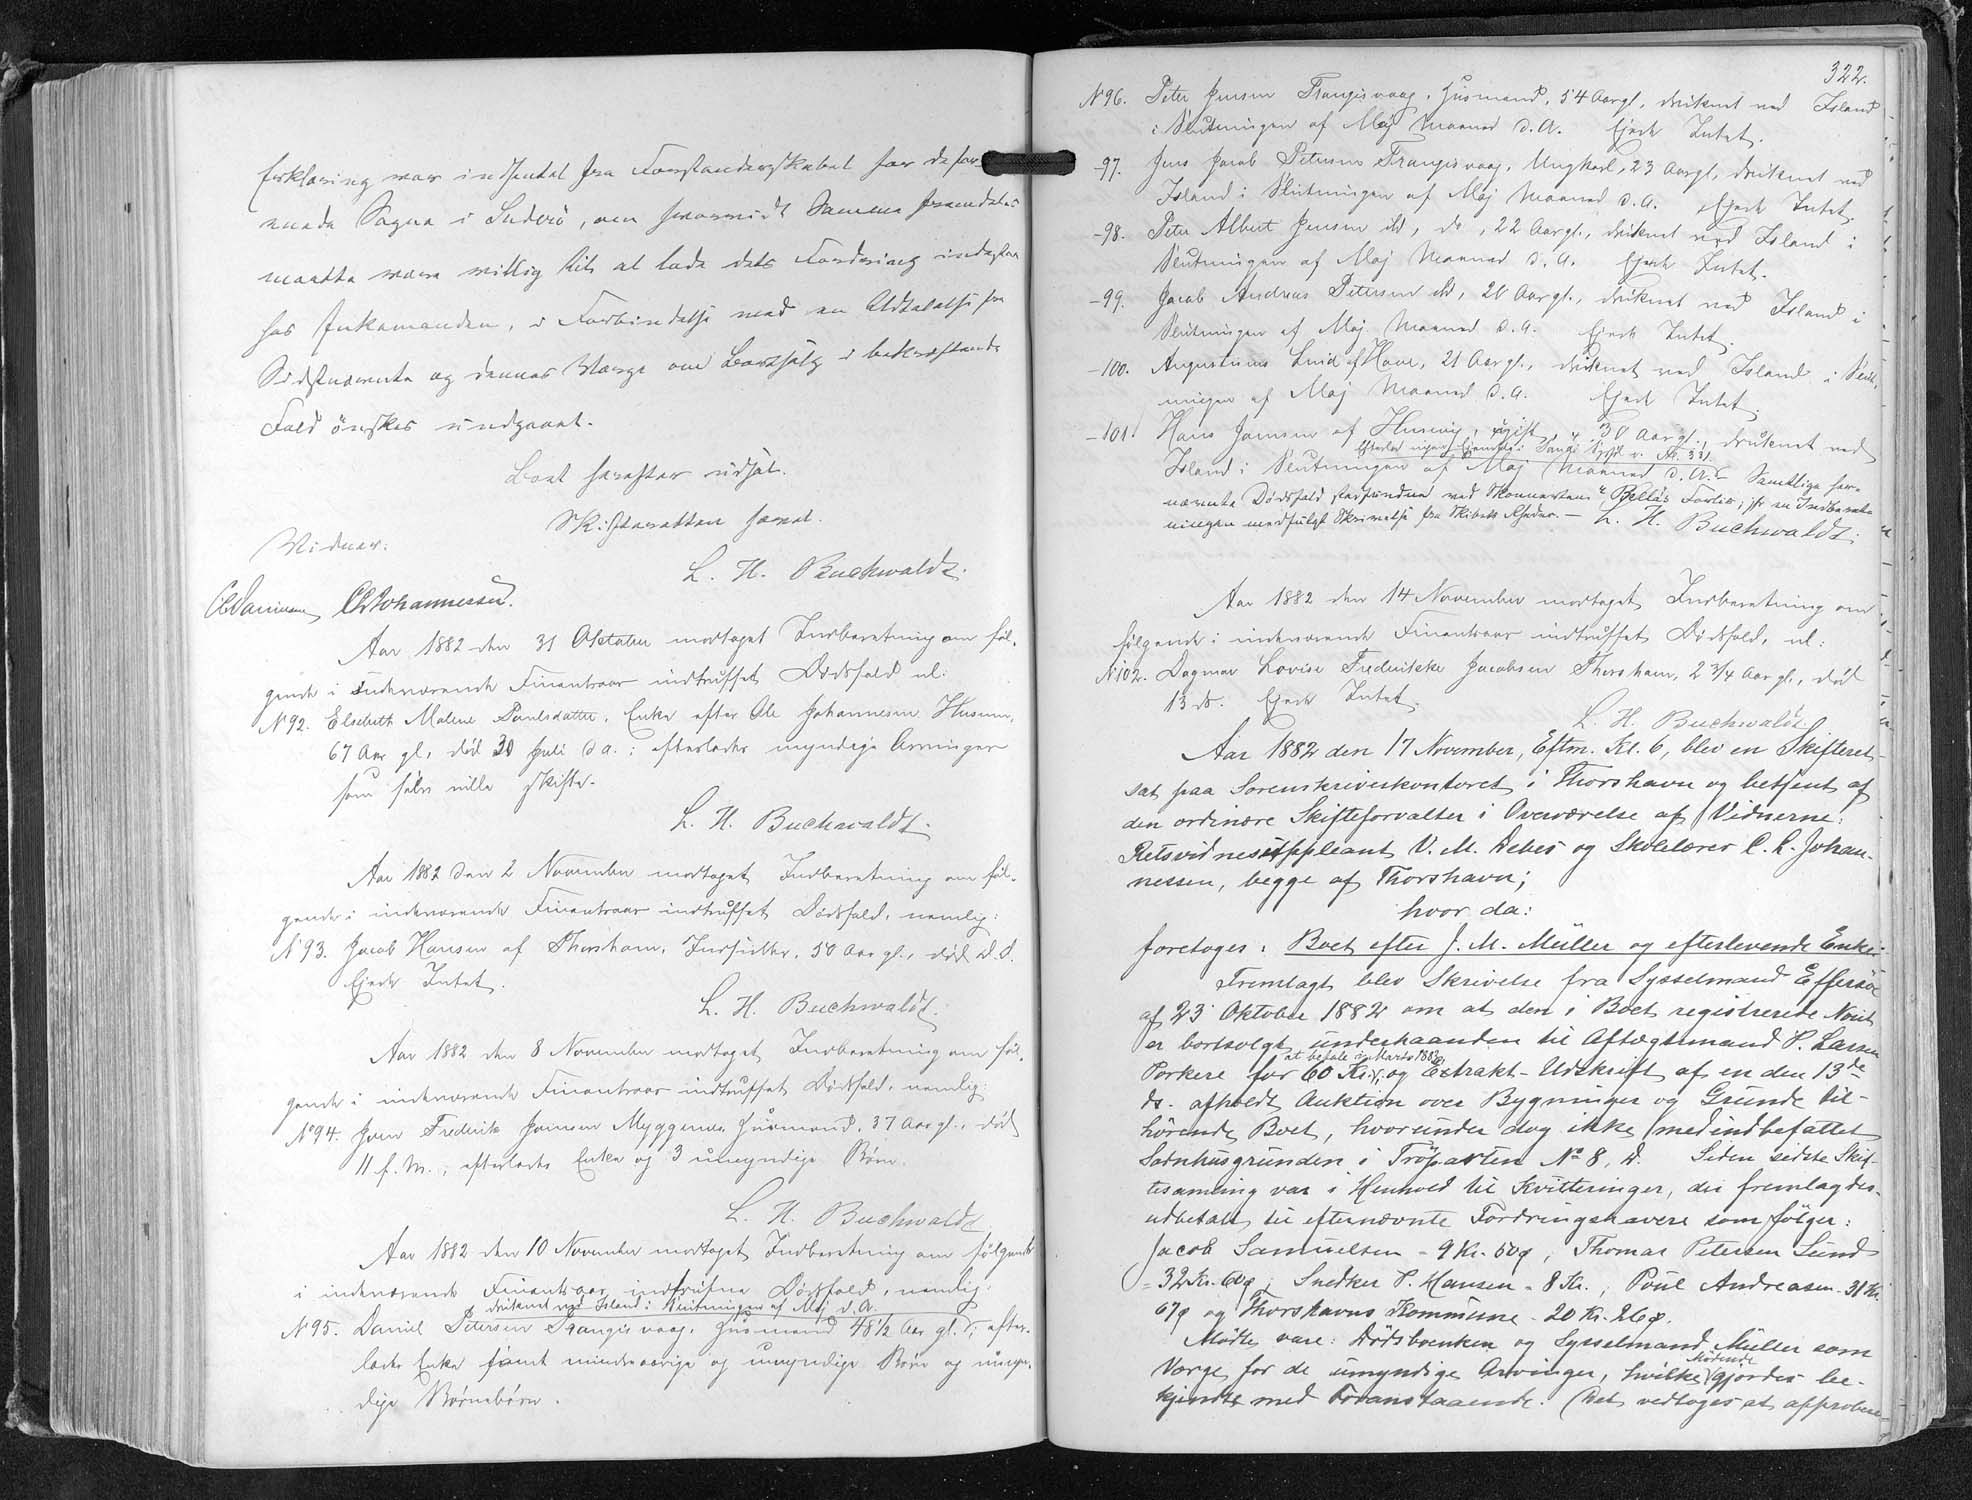 Erklæring var indhentet fra Forstanderskabet for de for-
nævnte Sogne i Suderö, om hvorvidt Samme fremdeles
maatte være villig til at lade dets Fordring indestaa
hos Enkemanden, i Forbindelse med en Udtalelse fra
Sidstnævnte og dennes Værge om Bortsalg i bekræftende
Fald önskes undgaaet.
Boet herefter udsat.
Skifteretten hævet.
Vidner:
L. H. Buchwaldt.
Johannessen.
Aar 1882 den 31 Oktober modtaget Indberetning om föl-
gende i indeværende Finantsaar indtruffet Dødsfald nl:
N 92. Elsebeth Malene Poulsdatter, Enke efter Ole Johannesen Husum,
67 Aar gl, död 30 Juli d.a.; efterlader myndige Arvinger
som selv ville skifte.
L. H. Buchwaldt.
Aar 1882 den 2 November modtaget Indberetning om föl-
gende i indeværende Finantsaar indtruffet Dödsfald, nemlig:
N 93. Jacob Hansen af Thorshavn, Indsidder, 50 Aar gl., död d.d.
Ejede Intet.
L. H. Buchwaldt.
Aar 1882 den 8 November modtaget Indberetning om föl-
gende i indeværende Finantsaar indtruffet Dødsfald, nemlig:
No 94. Joen Frederik Joensen Myggenæs, Huusmand, 37 Aar gl., död
11 f. M., efterlader Enke og 3 umyndige Børn.
L. H. Buchwaldt
Aar 1882 den 10 November modtaget Indberetning om fölgende
i indeværende Finantsaar indtrufne Dødsfald, nemlig:
druknet ved Island i Slutningen af Maj d.A.
N 95. Daniel Petersen Trangisvaag, Huusmand 48 1/2 Aar gl.; efter-
lader Enke samt mindreaarige og umyndige Børn og umyn-
dige Børnebørn.
322.
N 96. Peter Jensen Trangisvaag, Huusmand, 54 Aar gl., druknet ved Island
i Slutningen af Maj Maaned d.A. Ejede Intet.
- 97. Jens Jacob Petersen Trangisvaag, Ungkarl, 23 Aar gl, druknet ved
Island i Slutningen af Maj Maaned d.A. Ejede Intet.
- 98. Peter Albert Jensen ibd, do, 22 Aar gl., druknet ved Island i
Slutningen af Maj Maaned d.A. Ejede Intet.
- 99. Jacob Andreas Petersen ibd, 20 Aar gl., druknet ved Island i
Slutningen af Maj Maaned d.A. Ejede Intet.
- 100. Augustinus Lvid af Hove, 21 Aar gl., druknet ved Island i Slut-
ningen af Maj Maaned d.A. Ejede Intet.
- 101. Hans Joensen af Husevig, ugift, 30 Aar gl., druknet ved
Efterlod ingen Ejendele
Island i Slutningen af Maj Maaned d.A. Samtlige for-
nævnte Dödsfald stedfundne ved Skonnerten "Bella"s Forlis; jfr en Indberet-
ningen medfulgt Skrivelse fra Skibets Rheder. — L. H. Buchwaldt.
Aar 1882 den 14 November modtaget Indberetning om
fölgende i indeværende Finantsaar indtruffet Dödsfald, nl:
N 102. Dagmar Lovise Frederikke Jacobsen Thorshavn, 2 3/4 Aar gl., död
13 ds. Ejede Intet.
L. H. Buchwaldt
Aar 1882 den 17 November, Eftm. Kl. 6, blev en Skifteret
sat paa Sorenskriverkontoret i Thorshavn og betjent af
den ordinære Skifteforvalter i Overværelse af Vidnerne:
Retsvidnesuppleant V. M. Debes og Skolelærer C. L. Johan-
nessen, begge af Thorshavn;
hvor da:
foretoges: Boet efter J. M. Müller og efterlevende Enke:
Fremlagt blev Skrivelse fra Sysselmand Effersöe
af 23 Oktober 1882 om at den i Boet registrerede Noat
er bortsolgt underhaanden til Aftægtsmand P. Larsen
at betale i Marts 1883
Porkere for 60 Kr., og Extrakt-Udskrift af en den 13de
ds. afholdt Auktion over Bygninger og Grunde til-
hörende Boet, hvorunder dog ikke medindbefattet
Sodnhusgrunden i Tröparten No 8, d. Siden sidste Skif-
tesamling var i Henhold til Kvitteringer, der fremlagdes
udbetalt til efternævnte Fordringshavere som fölger:
Jacob Samuelsen - 9 Kr. 50 ø; Thomas Petersen Sund
- 32 Kr. 60 ø; Snedker P. Hansen - 8 Kr.; Poul Andreasen - 31 Kr.
67 ø og Thorshavns Kommune - 20 Kr. 26 ø.
Mødte vare: Dödsboenken og Sysselmand Müller som
Værge for de umyndige Arvinger, hvilke Mödende gjordes be-
kjendte med Foranstaaende. Det vedtoges at approbere